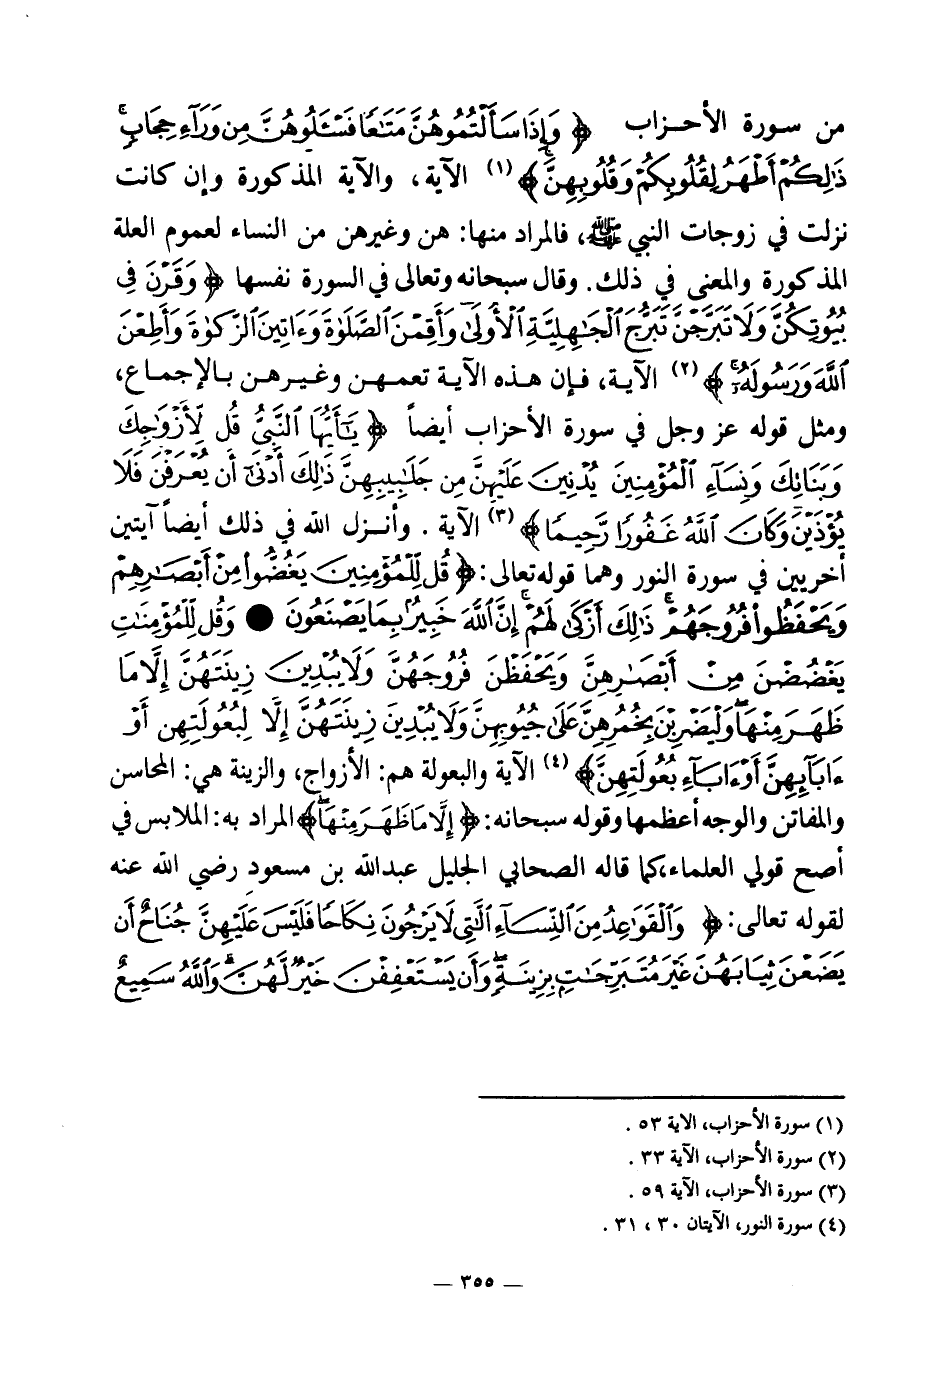 من سورة الأحزاب ﴿ وَإِذَا سَأَلْتُمُوهُنَّ مَتَٰعًا فَسْـَٔلُوهُنَّ مِن وَرَآءِ حِجَابٍ ۚ
ذَٰلِكُمْ أَطْهَرُ لِقُلُوبِكُمْ وَقُلُوبِهِنَّ ﴾(١) الآية، والآية المذكورة وإن كانت
نزلت في زوجات النبي ﷺ، فالمراد منها: هن وغيرهن من النساء لعموم العلة
المذكورة والمعنى في ذلك. وقال سبحانه وتعالى في السورة نفسها ﴿ وَقَرْنَ فِى
بُيُوتِكُنَّ وَلَا تَبَرَّجْنَ تَبَرُّجَ ٱلْجَٰهِلِيَّةِ ٱلْأُولَىٰ وَأَقِمْنَ ٱلصَّلَوٰةَ وَءَاتِينَ ٱلزَّكَوٰةَ وَأَطِعْنَ
ٱللَّهَ وَرَسُولَهُۥٓ ۚ ﴾(٢) الآية، فإن هذه الآية تعمهن وغيرهن بالإجماع،
ومثل قوله عز وجل في سورة الأحزاب أيضاً ﴿ يَٰٓأَيُّهَا ٱلنَّبِىُّ قُل لِّأَزْوَٰجِكَ
وَبَنَاتِكَ وَنِسَآءِ ٱلْمُؤْمِنِينَ يُدْنِينَ عَلَيْهِنَّ مِن جَلَٰبِيبِهِنَّ ذَٰلِكَ أَدْنَىٰٓ أَن يُعْرَفْنَ فَلَا
يُؤْذَيْنَ ۗ وَكَانَ ٱللَّهُ غَفُورًا رَّحِيمًا ﴾(٣) الآية . وأنزل الله في ذلك أيضاً آيتين
أخريين في سورة النور وهما قوله تعالى: ﴿ قُل لِّلْمُؤْمِنِينَ يَغُضُّوا۟ مِنْ أَبْصَٰرِهِمْ
وَيَحْفَظُوا۟ فُرُوجَهُمْ ۚ ذَٰلِكَ أَزْكَىٰ لَهُمْ ۗ إِنَّ ٱللَّهَ خَبِيرٌۢ بِمَا يَصْنَعُونَ ● وَقُل لِّلْمُؤْمِنَٰتِ
يَغْضُضْنَ مِنْ أَبْصَٰرِهِنَّ وَيَحْفَظْنَ فُرُوجَهُنَّ وَلَا يُبْدِينَ زِينَتَهُنَّ إِلَّا مَا
ظَهَرَ مِنْهَا ۖ وَلْيَضْرِبْنَ بِخُمُرِهِنَّ عَلَىٰ جُيُوبِهِنَّ ۖ وَلَا يُبْدِينَ زِينَتَهُنَّ إِلَّا لِبُعُولَتِهِنَّ أَوْ
ءَابَآئِهِنَّ أَوْ ءَابَآءِ بُعُولَتِهِنَّ ﴾(٤) الآية والبعولة هم: الأزواج، والزينة هي: المحاسن
والمفاتن والوجه أعظمها وقوله سبحانه: ﴿ إِلَّا مَا ظَهَرَ مِنْهَا ۖ ﴾ المراد به: الملابس في
أصح قولي العلماء، كما قاله الصحابي الجليل عبدالله بن مسعود رضي الله عنه
لقوله تعالى: ﴿ وَٱلْقَوَٰعِدُ مِنَ ٱلنِّسَآءِ ٱلَّٰتِى لَا يَرْجُونَ نِكَاحًا فَلَيْسَ عَلَيْهِنَّ جُنَاحٌ أَن
يَضَعْنَ ثِيَابَهُنَّ غَيْرَ مُتَبَرِّجَٰتٍۭ بِزِينَةٍ ۖ وَأَن يَسْتَعْفِفْنَ خَيْرٌ لَّهُنَّ ۗ وَٱللَّهُ سَمِيعٌ
(١) سورة الأحزاب، الاية ٥٣ .
(٢) سورة الأحزاب، الآية ٣٣ .
(٣) سورة الأحزاب، الآية ٥٩ .
(٤) سورة النور، الآيتان ٣٠ ، ٣١ .
— ٣٥٥ —